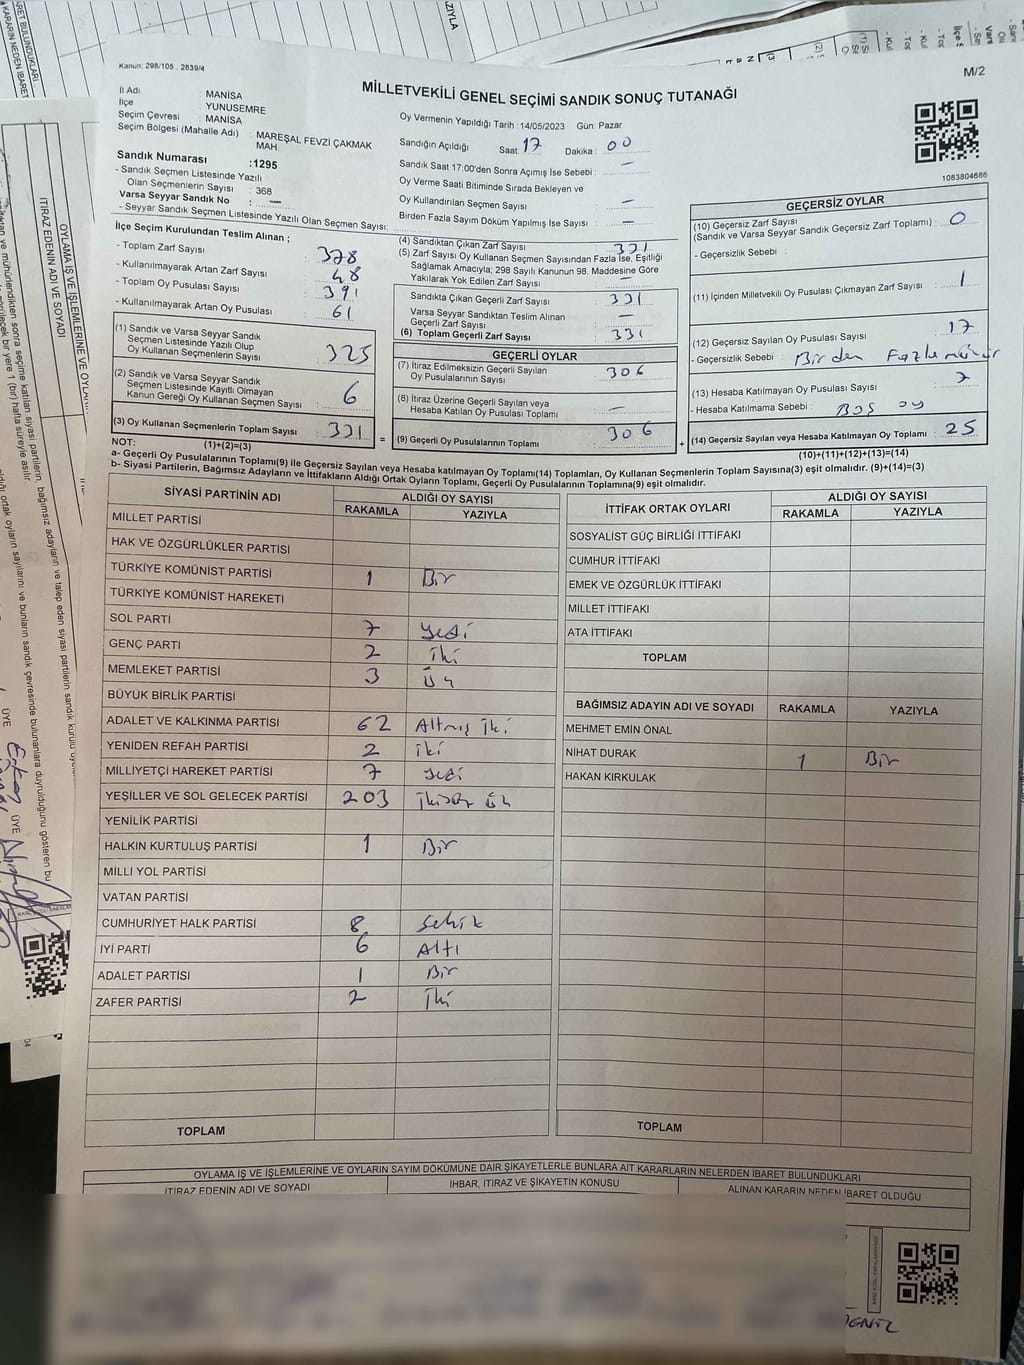 Kanun: 298/105 , 2839/4
M/2
MİLLETVEKİLİ GENEL SEÇİMİ SANDIK SONUÇ TUTANAĞI
İl Adı : MANİSA
İlçe : YUNUSEMRE
Seçim Çevresi : MANİSA
Seçim Bölgesi (Mahalle Adı) : MAREŞAL FEVZİ ÇAKMAK MAH
Sandık Numarası :1295
- Sandık Seçmen Listesinde Yazılı
Olan Seçmenlerin Sayısı : 368
Varsa Seyyar Sandık No : —
- Seyyar Sandık Seçmen Listesinde Yazılı Olan Seçmen Sayısı:
Oy Vermenin Yapıldığı Tarih :14/05/2023 Gün: Pazar
Sandığın Açıldığı Saat: 17 Dakika : 00
Sandık Saat 17:00'den Sonra Açımış İse Sebebi : —
Oy Verme Saati Bitiminde Sırada Bekleyen ve
Oy Kullandırılan Seçmen Sayısı : —
Birden Fazla Sayım Döküm Yapılmış İse Sayısı : —
1083804686
İlçe Seçim Kurulundan Teslim Alınan ;
- Toplam Zarf Sayısı : 378
- Kullanılmayarak Artan Zarf Sayısı : 48
- Toplam Oy Pusulası Sayısı : 391
- Kullanılmayarak Artan Oy Pusulası : 61
(1) Sandık ve Varsa Seyyar Sandık
Seçmen Listesinde Yazılı Olup
Oy Kullanan Seçmenlerin Sayısı : 325
(2) Sandık ve Varsa Seyyar Sandık
Seçmen Listesinde Kayıtlı Olmayan
Kanun Gereği Oy Kullanan Seçmen Sayısı : 6
(3) Oy Kullanan Seçmenlerin Toplam Sayısı : 331
(1)+(2)=(3)
(4) Sandıktan Çıkan Zarf Sayısı : 331
(5) Zarf Sayısı Oy Kullanan Seçmen Sayısından Fazla İse, Eşitliği
Sağlamak Amacıyla; 298 Sayılı Kanunun 98. Maddesine Göre
Yakılarak Yok Edilen Zarf Sayısı : —
Sandıkta Çıkan Geçerli Zarf Sayısı : 331
Varsa Seyyar Sandıktan Teslim Alınan
Geçerli Zarf Sayısı : —
(6) Toplam Geçerli Zarf Sayısı : 331
GEÇERLİ OYLAR
(7) İtiraz Edilmeksizin Geçerli Sayılan
Oy Pusulalarının Sayısı : 306
(8) İtiraz Üzerine Geçerli Sayılan veya
Hesaba Katılan Oy Pusulası Toplamı : —
= (9) Geçerli Oy Pusulalarının Toplamı : 306 +
GEÇERSİZ OYLAR
(10) Geçersiz Zarf Sayısı
(Sandık ve Varsa Seyyar Sandık Geçersiz Zarf Toplamı) : 0
- Geçersizlik Sebebi :
(11) İçinden Milletvekili Oy Pusulası Çıkmayan Zarf Sayısı : 1
(12) Geçersiz Sayılan Oy Pusulası Sayısı : 17
- Geçersizlik Sebebi : Birden Fazla mühür
(13) Hesaba Katılmayan Oy Pusulası Sayısı : 7
- Hesaba Katılmama Sebebi : Boş oy
(14) Geçersiz Sayılan veya Hesaba Katılmayan Oy Toplamı : 25
(10)+(11)+(12)+(13)=(14)
NOT:
a- Geçerli Oy Pusulalarının Toplamı(9) ile Geçersiz Sayılan veya Hesaba katılmayan Oy Toplamı(14) Toplamları, Oy Kullanan Seçmenlerin Toplam Sayısına(3) eşit olmalıdır. (9)+(14)=(3)
b- Siyasi Partilerin, Bağımsız Adayların ve İttifakların Aldığı Ortak Oyların Toplamı, Geçerli Oy Pusulalarının Toplamına(9) eşit olmalıdır.
SİYASİ PARTİNİN ADI ALDIĞI OY SAYISI
RAKAMLA YAZIYLA
MİLLET PARTİSİ
HAK VE ÖZGÜRLÜKLER PARTİSİ
TÜRKİYE KOMÜNİST PARTİSİ 1 Bir
TÜRKİYE KOMÜNİST HAREKETİ
SOL PARTİ 7 yedi
GENÇ PARTİ 2 iki
MEMLEKET PARTİSİ 3 üç
BÜYÜK BİRLİK PARTİSİ
ADALET VE KALKINMA PARTİSİ 62 Altmış iki
YENİDEN REFAH PARTİSİ 2 iki
MİLLİYETÇİ HAREKET PARTİSİ 7 yedi
YEŞİLLER VE SOL GELECEK PARTİSİ 203 ikiyüz üç
YENİLİK PARTİSİ
HALKIN KURTULUŞ PARTİSİ 1 Bir
MİLLİ YOL PARTİSİ
VATAN PARTİSİ
CUMHURİYET HALK PARTİSİ 8 sekiz
İYİ PARTİ 6 Altı
ADALET PARTİSİ 1 Bir
ZAFER PARTİSİ 2 iki
TOPLAM
İTTİFAK ORTAK OYLARI ALDIĞI OY SAYISI
RAKAMLA YAZIYLA
SOSYALİST GÜÇ BİRLİĞİ İTTİFAKI
CUMHUR İTTİFAKI
EMEK VE ÖZGÜRLÜK İTTİFAKI
MİLLET İTTİFAKI
ATA İTTİFAKI
TOPLAM
BAĞIMSIZ ADAYIN ADI VE SOYADI RAKAMLA YAZIYLA
MEHMET EMİN ÖNAL
NİHAT DURAK 1 Bir
HAKAN KIRKULAK
TOPLAM
OYLAMA İŞ VE İŞLEMLERİNE VE OYLARIN SAYIM DÖKÜMÜNE DAİR ŞİKAYETLERLE BUNLARA AİT KARARLARIN NELERDEN İBARET BULUNDUKLARI
İTİRAZ EDENİN ADI VE SOYADI İHBAR, İTİRAZ VE ŞİKAYETİN KONUSU ALINAN KARARIN NEDEN İBARET OLDUĞU
OYLAMA İŞ VE İŞLEMLERİNE VE OYLARI
İTİRAZ EDENİN ADI VE SOYADI
KARARIN NEDEN İBARET
YAZIYLA
ÜYE
ÜYE